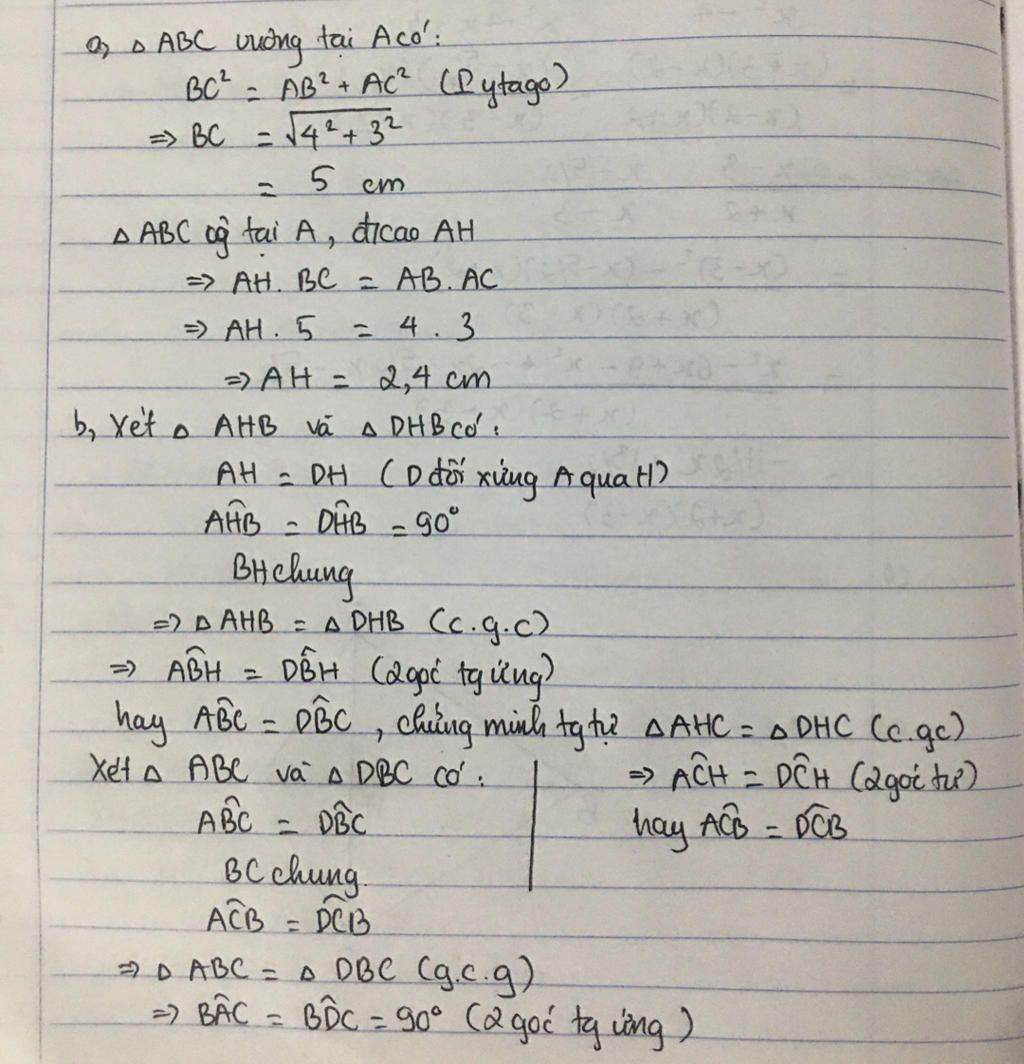 a, △ ABC vuông tại A có:
BC² = AB² + AC² (Pytago)
⇒ BC = √4² + 3²
= 5 cm
△ ABC vg tại A, đ/cao AH
⇒ AH. BC = AB. AC
⇒ AH. 5 = 4 . 3
⇒ AH = 2,4 cm
b, Xét △ AHB và △ DHB có:
AH = DH (D đối xứng A qua H)
AĤB = DĤB = 90°
BH chung
⇒ △ AHB = △ DHB (c.g.c)
⇒ AB̂H = DB̂H (2 góc tg ứng)
hay AB̂C = DB̂C , chứng minh tg tự △ AHC = △ DHC (c.gc)
⇒ AĈH = DĈH (2 góc tư)
hay AĈB = DĈB
Xét △ ABC và △ DBC có:
AB̂C = DB̂C
BC chung
AĈB = DĈB
⇒ △ ABC = △ DBC (g.c.g)
⇒ BÂC = BD̂C = 90° (2 góc tg ứng)